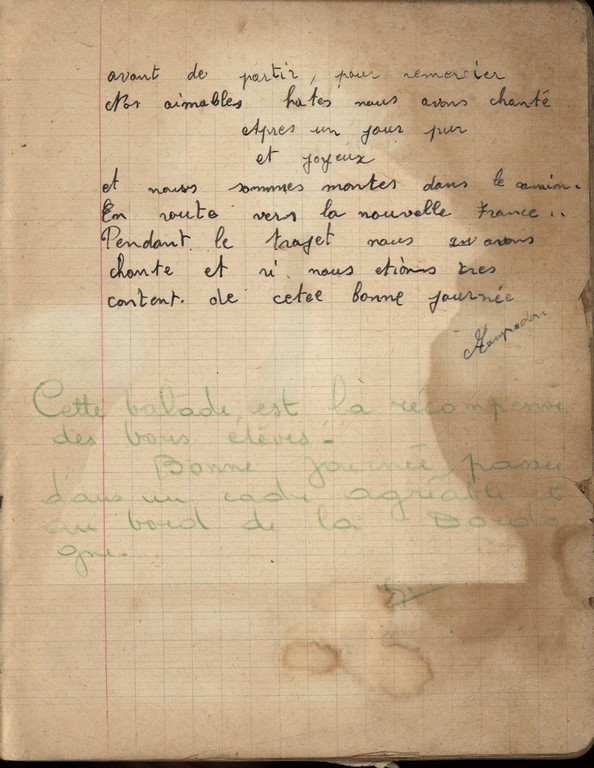 avant de partir, pour remercier
Nos aimables hotes nous avons chanté
Apres un jour pur
et joyeux
et nous sommes montes dans le camion.
En route vers la nouvelle France..
Pendant le trajet nous avons
chante et ri. nous etions tres
content. de cetee bonne journée
Cette balade est la récompense
des bons élèves.
Bonne journée passée
dans un cadre agréable et
au bord de la Dordo
gne.